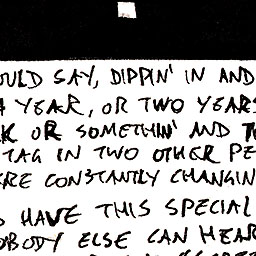 OULD SAY, DIPPIN' IN AND
YEAR, OR TWO YEARS
OR SOMETHIN' AND
TAG IN TWO OTHER PE
RE CONSTANTLY CHANGIN
HAVE THIS SPECIAL
OBODY ELSE CAN HEAR